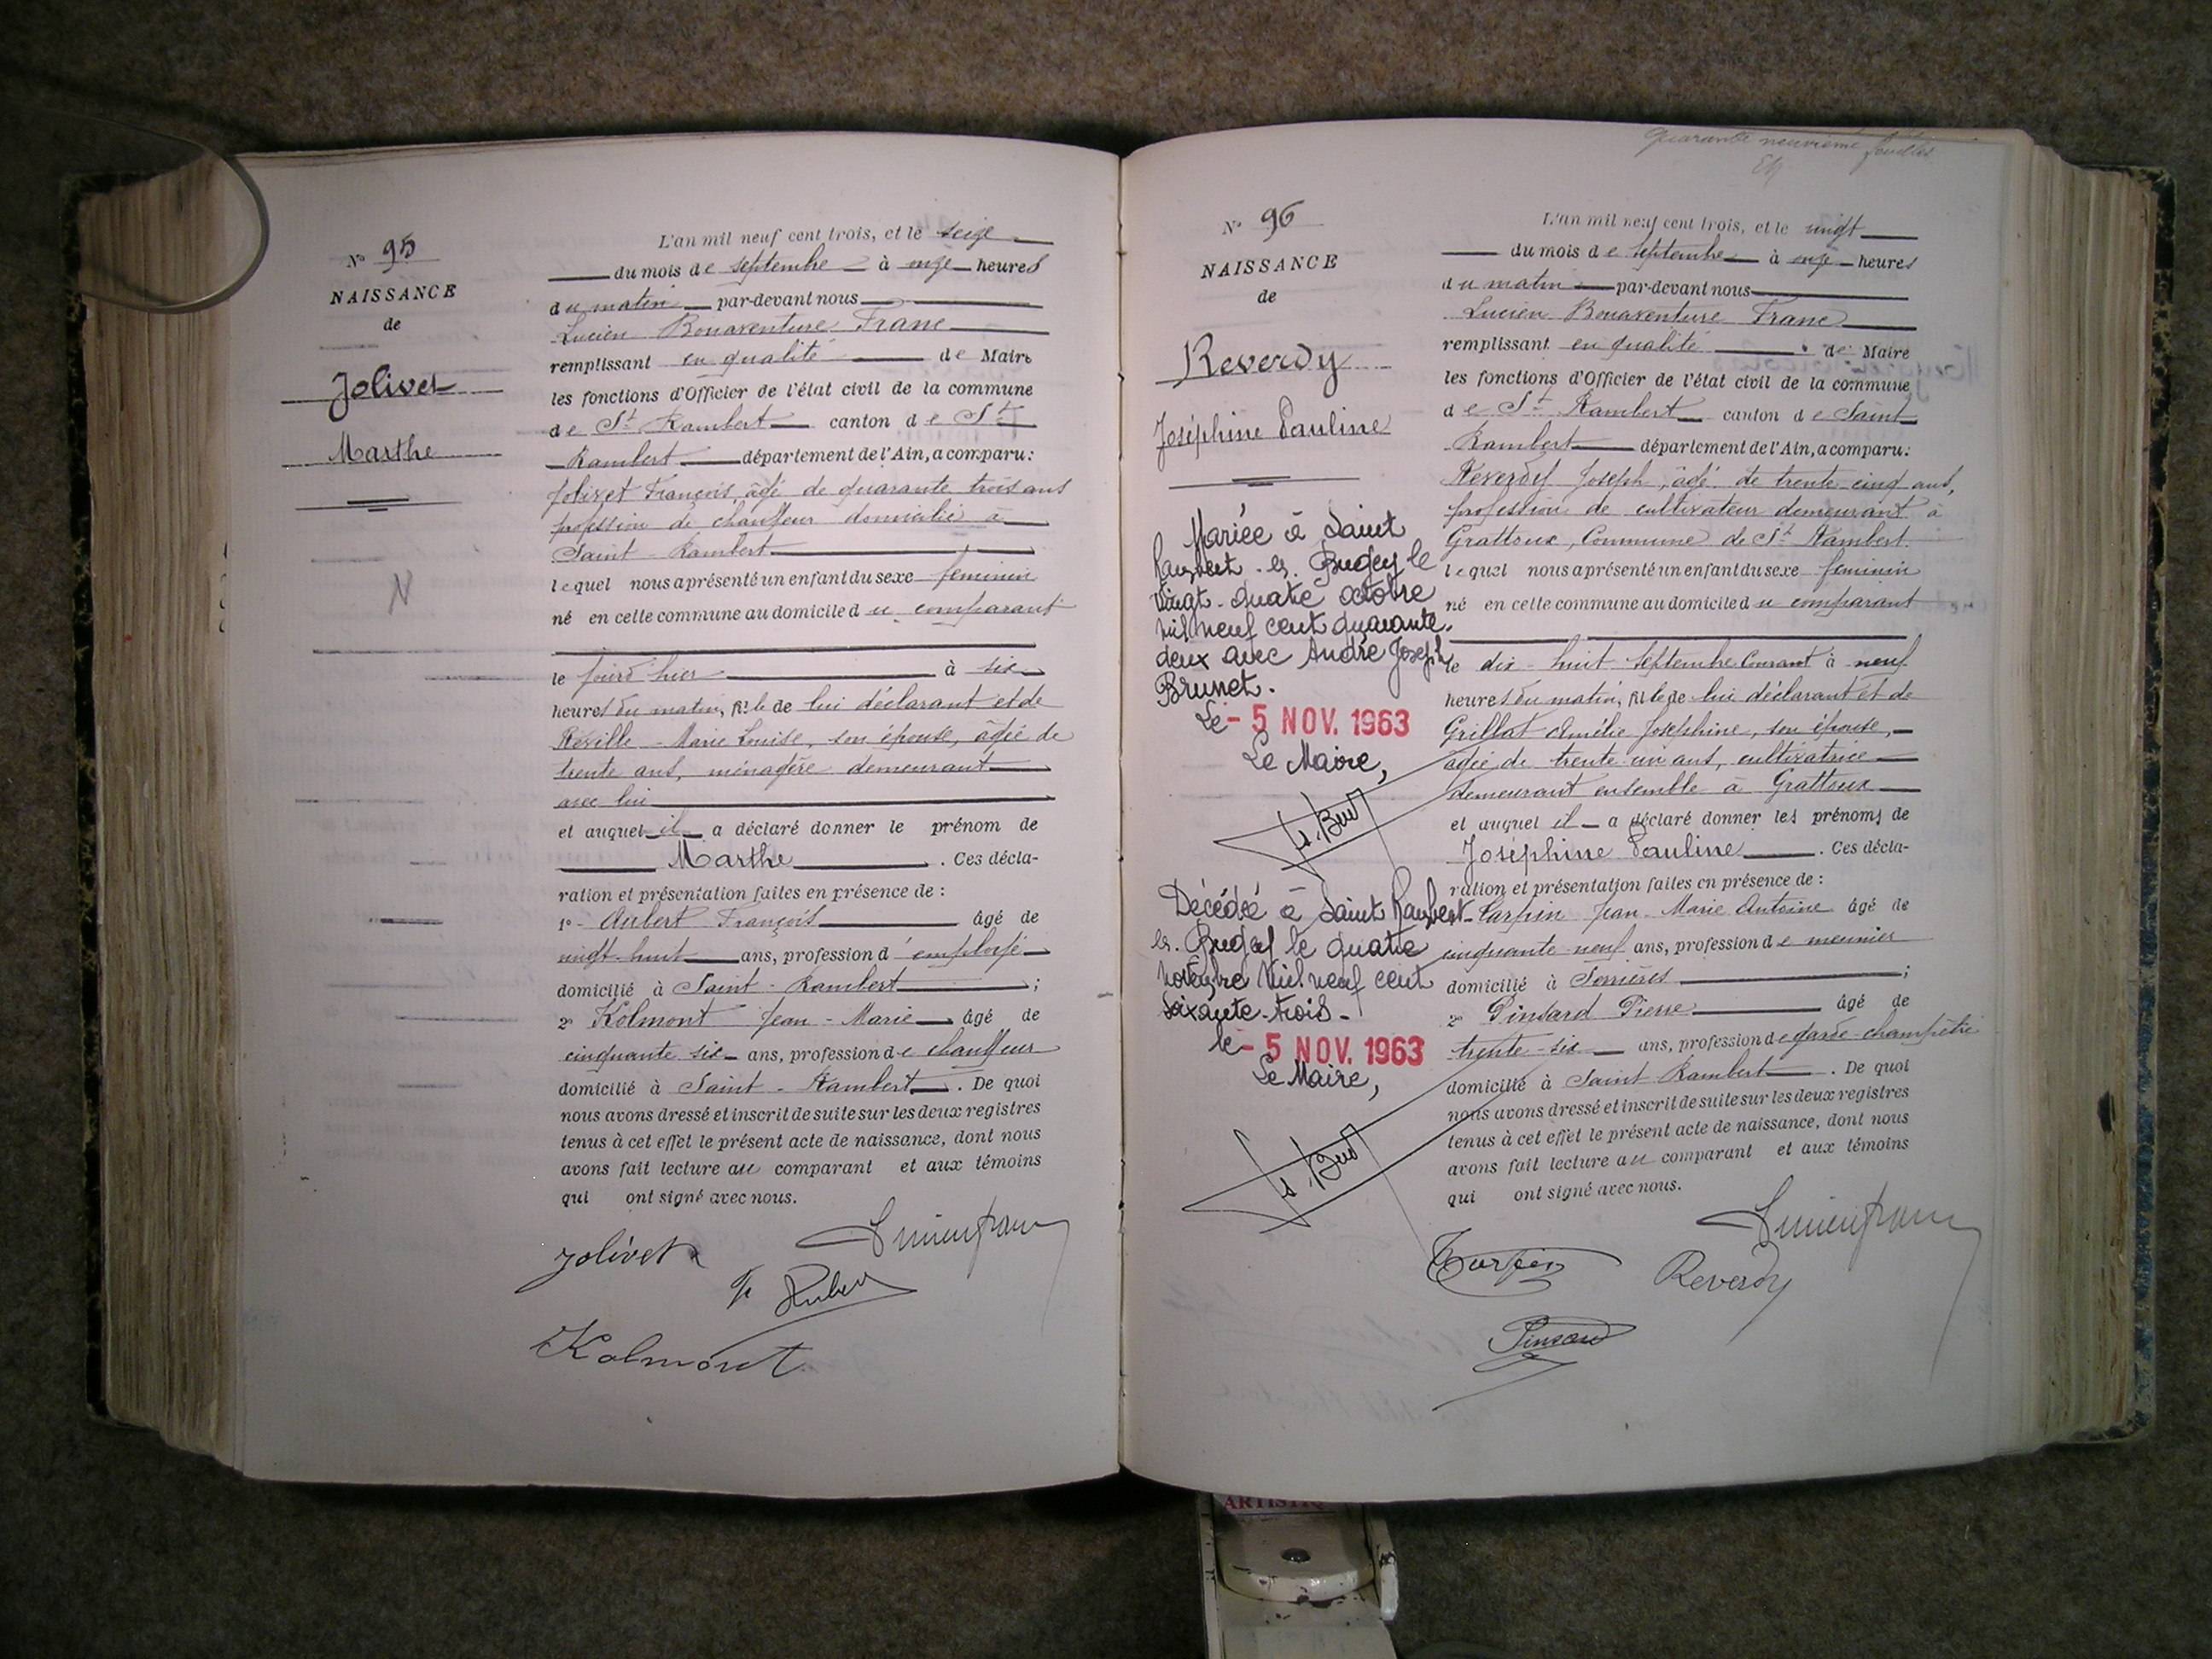 N° 95
NAISSANCE
de
Jolivet
Marthe
N
L'an mil neuf cent trois, et le seize
du mois de septembre à onze heures
du matin par-devant nous
Lucien Bonaventure Franc
remplissant en qualité de Maire
les fonctions d'Officier de l'état civil de la commune
de St Rambert canton de St
Rambert département de l'Ain, a comparu:
Jolivet François, âgé de quarante trois ans
profession de chauffeur domicilié à
Saint-Rambert
lequel nous a présenté un enfant du sexe féminin
né en cette commune au domicile du comparant
le jourd'hier à six
heures du matin, fille de lui déclarant et de
Réville Marie Louise, son épouse, âgée de
trente ans, ménagère demeurant
avec lui
et auquel il a déclaré donner le prénom de
Marthe. Ces décla-
ration et présentation faites en présence de :
1° Aubert François âgé de
vingt-huit ans, profession d'employé
domicilié à Saint-Rambert ;
2° Kolmont Jean-Marie âgé de
cinquante six ans, profession de chauffeur
domicilié à Saint-Rambert. De quoi
nous avons dressé et inscrit de suite sur les deux registres
tenus à cet effet le présent acte de naissance, dont nous
avons fait lecture au comparant et aux témoins
qui ont signé avec nous.
Jolivet
Kolmont
Quarante neuvième feuillet
N° 96
NAISSANCE
de
Reverdy
Joséphine Pauline
Mariée à Saint
Rambert-en-Bugey le
vingt-quatre octobre
mil neuf cent quarante-
deux avec André Joseph
Brunet.
Le - 5 NOV. 1963
Le Maire,
Décédée à Saint Rambert-
en-Bugey le quatre
novembre mil neuf cent
soixante-trois-
le - 5 NOV. 1963
Le Maire,
L'an mil neuf cent trois, et le vingt
du mois de septembre à onze heures
du matin par-devant nous
Lucien Bonaventure Franc
remplissant en qualité de Maire
les fonctions d'Officier de l'état civil de la commune
de St Rambert canton de Saint
Rambert département de l'Ain, a comparu:
Reverdy Joseph, âgé de trente cinq ans,
profession de cultivateur demeurant à
Grattoux, Commune de St Rambert
lequel nous a présenté un enfant du sexe féminin
né en cette commune au domicile du comparant
le dix-huit septembre courant à neuf
heures du matin, fille de lui déclarant et de
Grillat Amélie Joséphine, son épouse,
âgée de trente un ans, cultivatrice
demeurant ensemble à Grattoux
et auquel il a déclaré donner les prénoms de
Joséphine Pauline. Ces décla-
ration et présentation faites en présence de :
Jean-Marie Antoine âgé de
cinquante-neuf ans, profession de meunier
domicilié à Serrières ;
2° Pinsard Pierre âgé de
trente-six ans, profession de garde-champêtre
domicilié à Saint Rambert. De quoi
nous avons dressé et inscrit de suite sur les deux registres
tenus à cet effet le présent acte de naissance, dont nous
avons fait lecture au comparant et aux témoins
qui ont signé avec nous.
Reverdy
Pinsard